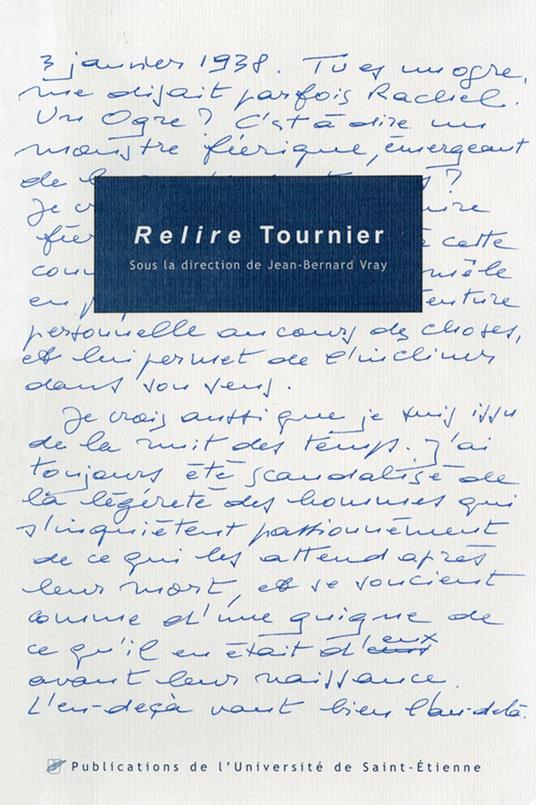 3 janvier 1938. Tu es un ogre,
me disait parfois Rachel.
Un Ogre ? C'est à dire un
monstre féerique, émergeant
de la ?
Je cr ire
féer à cette
conn mêle
en p enture
personnelle au cours des choses,
et lui permet de l'incliner
dans son sens.
Je crois aussi que je suis issu
de la nuit des temps. J'ai
toujours été scandalisé de
la légèreté des hommes qui
s'inquiètent passionnément
de ce qui les attend après
leur mort, et se soucient
comme d'une guigne de
ce qu'il en était d'eux
avant leur naissance.
L'en-deçà vaut bien l'au-delà.
Relire Tournier
Sous la direction de Jean-Bernard Vray
Publications de l'Université de Saint-Étienne